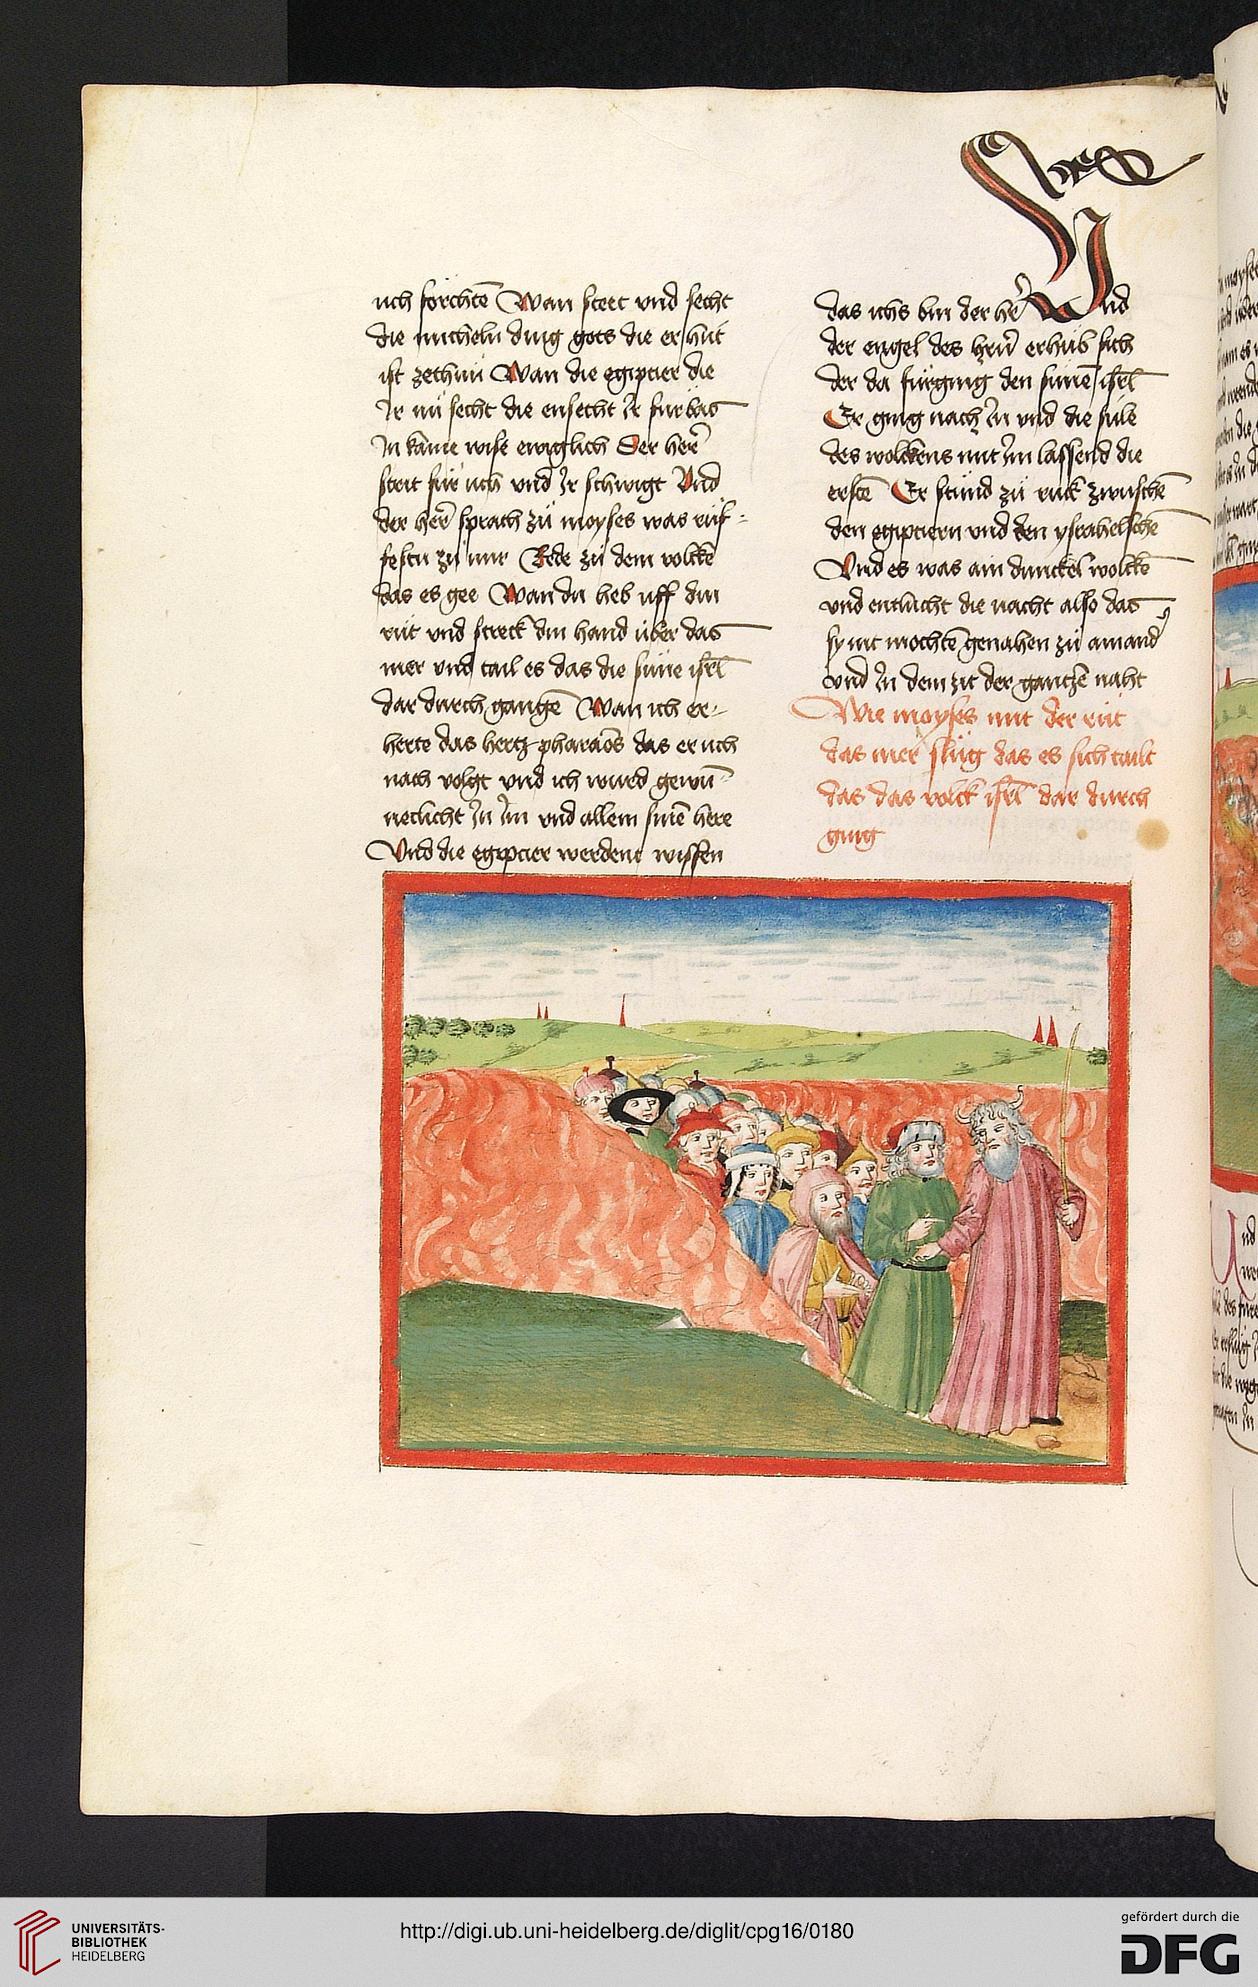 uch förchtē Wan steet vnd secht
die micheln ding gots die er hüt
ist zethun Wan die egiptier die
Ir nü secht die ensecht Ir fürbas
In kaine wise ewiglich Der herr̄
streit für uch vnd Ir schwigt Vnd
der herr̄ sprach zü moyses was rüf-
festu zü mir Rede zü dem volcke
das es gee Wan du heb uff din
rüt vnd streck din hand über das
mer vnd tail es das die süne isrl̄
dar durch gangē Wan ich er-
herte das hertz pharaōs das er uch
nach volgt vnd ich wurd gewū-
neclicht In Im vnd allem sinē here
Vnd die egiptier werdent wissen
das ichs bin der her̄ Vnd
der engel des hern̄ erhüb sich
der da fürging den sünē isrl̄
Er ging nach In vnd die süle
des wolckens mit Im lassend die
erstē Er stünd zü ruck zwuschē
den egiptiern vnd den ysrahelschē
Vnd es was ain dunckel wolckē
vnd entlücht die nacht also das
sy nit mochtē genahen zü ainand̄
vnd In dem zit der gantzē naht
Wie moyses mit der rüt
das mer slüg das es sich tailt
das das volck isrl̄ dar durch
ging
UNIVERSITÄTS-
BIBLIOTHEK
HEIDELBERG
http://digi.ub.uni-heidelberg.de/diglit/cpg16/0180
gefördert durch die
DFG